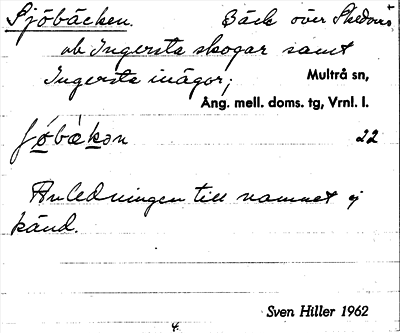 Sjöbäcken. Bäck över
och Ingersta skogar samt
Ingersta inägor; Multrå sn,
Ång. mell. doms. tg, Vrnl. l.
22
Anledningen till namnet ej
känd.
Sven Hiller 1962
4